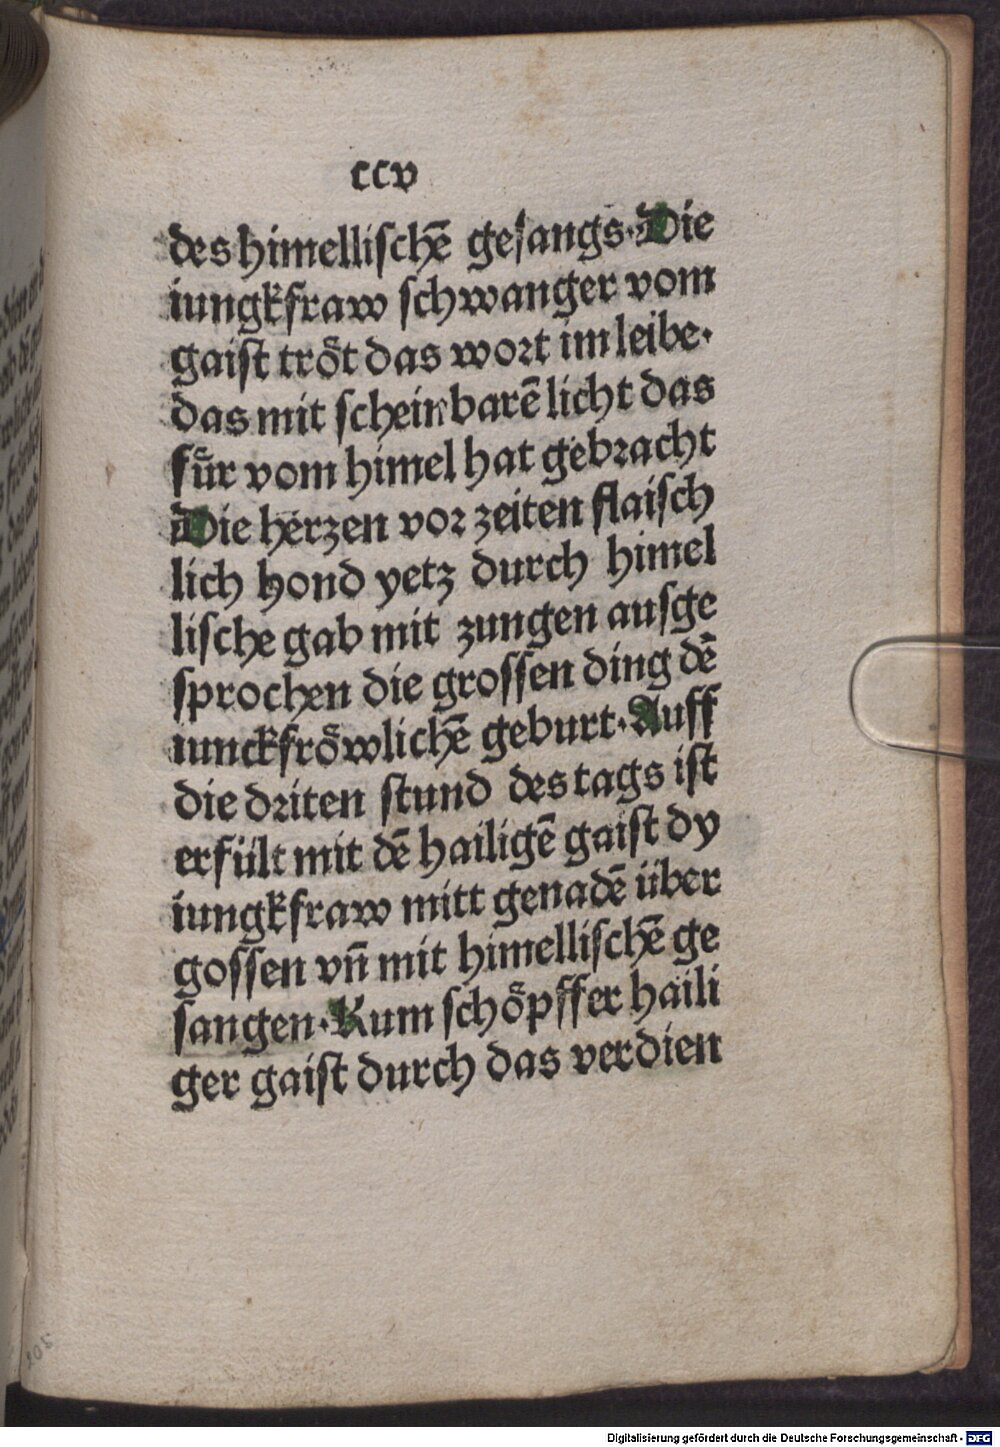 ccv
des himellischē gesangs·Die
iungkfraw schwanger vom
gaist trőt das wort im leibe·
das mit scheinbarē licht das
fűr vom himel hat gebracht
Die herzen vor zeiten flaisch
lich hond yetz durch himel
lische gab mit zungen ausge
sprochen die grossen ding dē
iunckfrőwlichē geburt·Auff
die driten stund des tags ist
erfült mit dē hailigē gaist dy
iungkfraw mitt genadē über
gossen vn̄ mit himellischē ge
sangen·Kum schőpffer haili
ger gaist durch das verdien
Digitalisierung gefördert durch die Deutsche Forschungsgemeinschaft - DFG